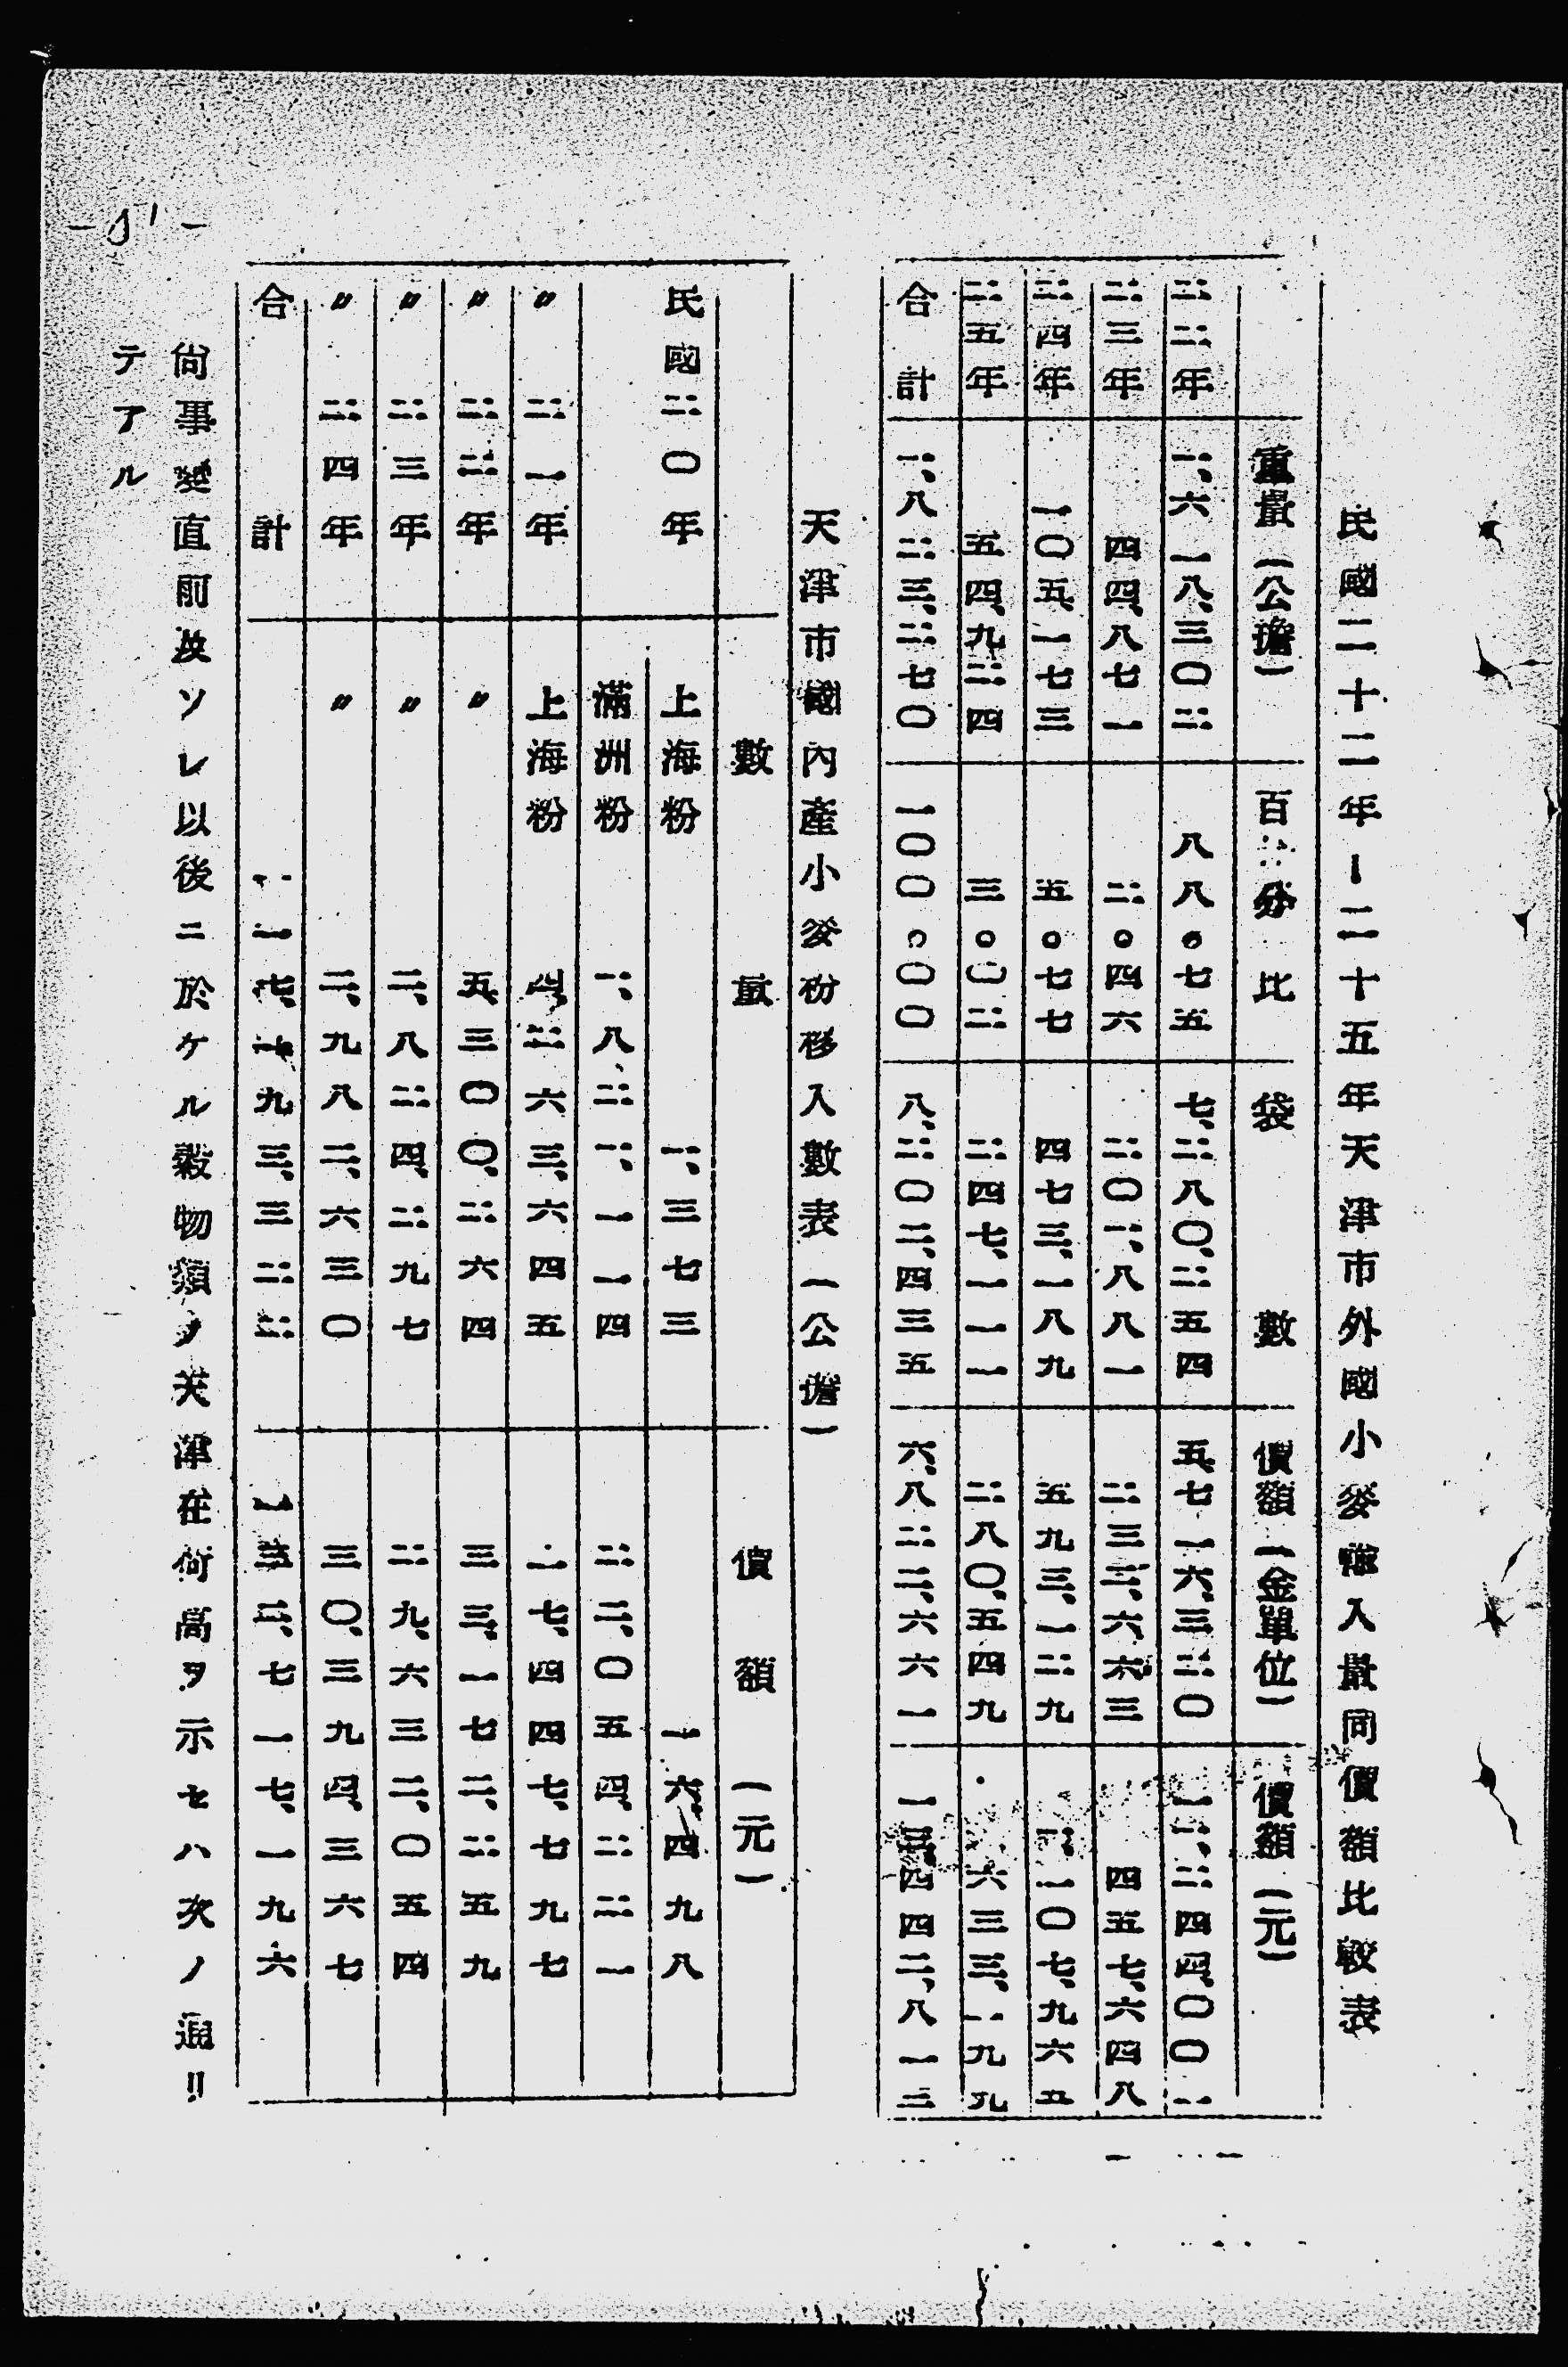 民國二十二年ー二十五年天津市外國小麥輸入量同價額比較表
重量(公擔) 百分比 袋數 價額(金單位) 價額(元)
二二年 一、六一八、三〇二 八八。七五 七、二八〇、二五四 五、七一六、三二〇 一一、二四四、〇〇一
二三年 四四、八七一 二。四六 二〇一、八八一 二三二、六六三 四五七、六四八
二四年 一〇五、一七三 五。七七 四七三、一八九 五九三、一二九 一、一〇七、九六五
二五年 五四、九二四 三。〇二 二四七、一一一 二八〇、五四九 六三三、一九九
合計 一、八二三、二七〇 一〇〇。〇〇 八、二〇二、四三五 六、八二二、六六一 一三、四四二、八一三
天津市國內產小麥粉移入數表(公擔)
數量 價額(元)
民國二〇年 上海粉 一、三七三 一六、四九八
滿洲粉 一、八二一、一一四 二二、〇五四、二二一
〃 二一年 上海粉 四、二六三、六四五 一七、四四七、七九七
〃 二二年 〃 五、三〇〇、二六四 三三、一七二、二五九
〃 二三年 〃 二、八二四、二九七 二九、六三二、〇五四
〃 二四年 〃 二、九八二、六三〇 三〇、三九四、三六七
合計 一七、一九三、三二二 一三二、七一七、一九六
尙事變直前及ソレ以後ニ於ケル穀物類ノ天津在荷高ヲ示セハ次ノ通リ
テアル